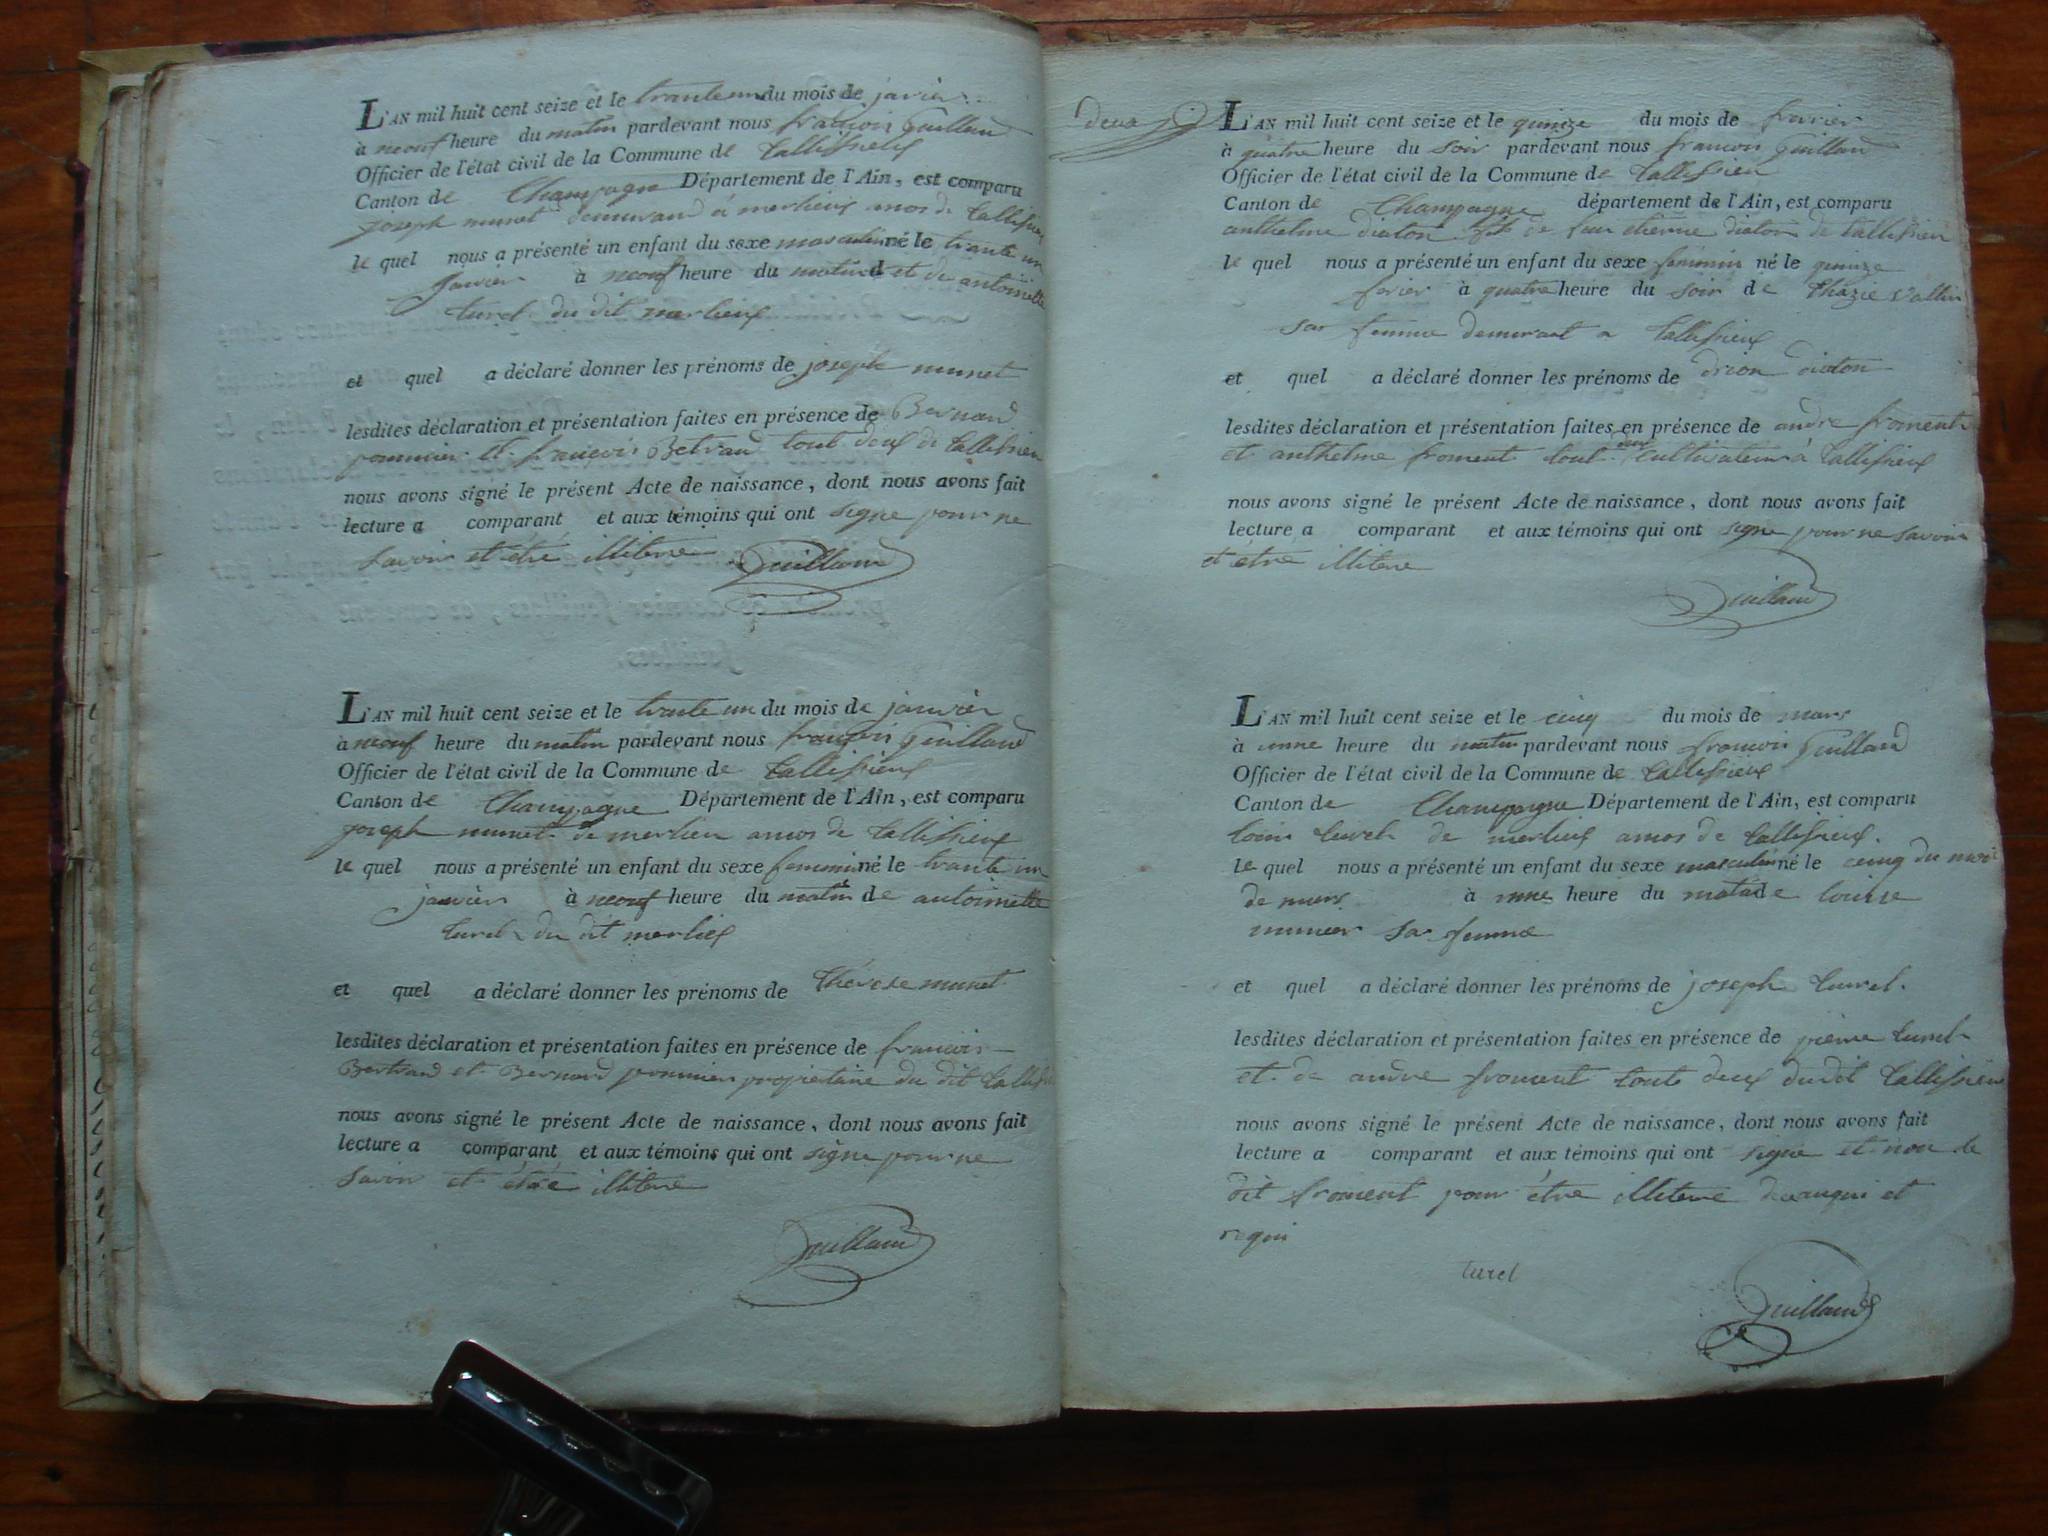 L'AN mil huit cent seize et le trante un du mois de javier
à neouf heure du matin pardevant nous françois Guilland
Officier de l'état civil de la Commune de tallissieux
Canton de Champagne Département de l'Ain, est comparu
joseph munet demurand a merlieux amos de tallissieu
le quel nous a présenté un enfant du sexe masculin né le trante un
janvier à neouf heure du matin et de antoinette
turel du dit merlieux
et quel a déclaré donner les prénoms de joseph munet
lesdites déclaration et présentation faites en présence de Bernard
pommier et françois Betrand tout deux de tallissieu
nous avons signé le présent Acte de naissance, dont nous avons fait
lecture a comparant et aux témoins qui ont signe pour ne
savoir et etre illitere Guilland
L'AN mil huit cent seize et le trante un du mois de janvier
à neouf heure du matin pardevant nous françois Guilland
Officier de l'état civil de la Commune de tallissieux
Canton de Champagne Département de l'Ain, est comparu
joseph munet de merlieu amos de tallissieux
le quel nous a présenté un enfant du sexe feminin né le trante un
janvier à neouf heure du matin de antoinette
turel du dit merliex
et quel a déclaré donner les prénoms de thérese munet
lesdites déclaration et présentation faites en présence de francois
Bertrand et Bernard pommier propietaire du dit tallissieu
nous avons signé le présent Acte de naissance, dont nous avons fait
lecture a comparant et aux témoins qui ont signe pour ne
savoir et étre illitere
Guilland
deux
L'AN mil huit cent seize et le quinze du mois de fevrier
à quatre heure du soir pardevant nous francois Guilland
Officier de l'état civil de la Commune de tallissieu
Canton de Champagne département de l'Ain, est comparu
anthelme diaton fils de feu etienne diaton de tallissieu
le quel nous a présenté un enfant du sexe feminin né le quinze
fevier à quatre heure du soir de vallin
sa femme demurant a tallissieux
et quel a déclaré donner les prénoms de diaton
lesdites déclaration et présentation faites en présence de andre froment
et anthelme froment tout deux cultivateur à tallissieux
nous avons signé le présent Acte de naissance, dont nous avons fait
lecture a comparant et aux témoins qui ont signe pour ne savoir
et etre illitere
Guilland
L'AN mil huit cent seize et le cinq du mois de mars
à unne heure du matin pardevant nous francois Guilland
Officier de l'état civil de la Commune de tallissieux
Canton de Champagne Département de l'Ain, est comparu
turel de merlieux amos de tallissieux.
le quel nous a présenté un enfant du sexe masculin né le cinq du moi
de mars à unne heure du matin de louise
munier sa femme
et quel a déclaré donner les prénoms de joseph turel.
lesdites déclaration et présentation faites en présence de pierre turel
et de andre froment touts deux dudit tallissieu
nous avons signé le présent Acte de naissance, dont nous avons fait
lecture a comparant et aux témoins qui ont signe et non le
dit froment pour étre illitere de et
requi
turel
Guilland